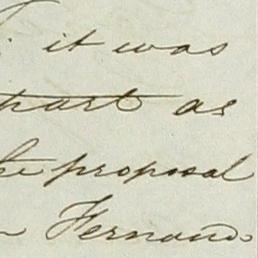 it was
part as
the proposal
Fernand-